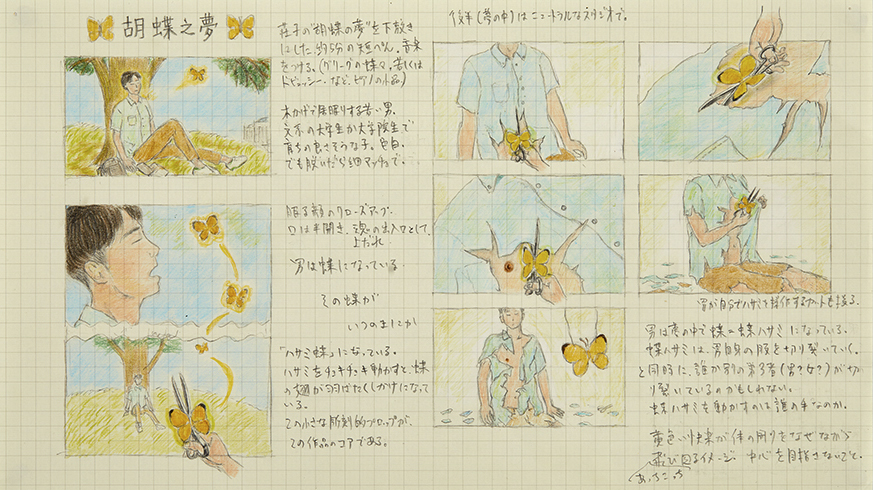 胡蝶之夢
荘子の"胡蝶の夢"を下敷き
にした約5分の短ぺん。音楽
をつける。(グリーグの蝶々。若しくは
ドビュッシーなど、ピアノの小品)
木かげで居眠りする若い男。
文系の大学生か大学院生で
育ちの良さそうな子。色白。
でも脱いだら細マッチョで。
眠る顔のクローズアップ
口は半開き、魂の出入口として。
上だれ
男は蝶になっている
その蝶が
いつのまにか
「ハサミ蝶」になっている。
ハサミをチョキチョキ動かすと、蝶
の翅が羽ばたくしかけになって
いる。
この小さな彫刻的プロップが、
この作品のコアである。
後半(夢の中)はニュートラルなスタジオで。
男が自分でハサミを操作するカットも撮る。
男は夢の中で蝶=蝶ハサミになっている。
蝶ハサミは、男自身の服を切り裂いていく。
と同時に、誰か別の第3者(男?女?)が切
り裂いているのかもしれない。
蝶ハサミを動かすのは誰の手なのか。
黄色い快楽が体の周りをなぜながら
飛び回るイメージ。中心を目指さないで。
あっちこっち